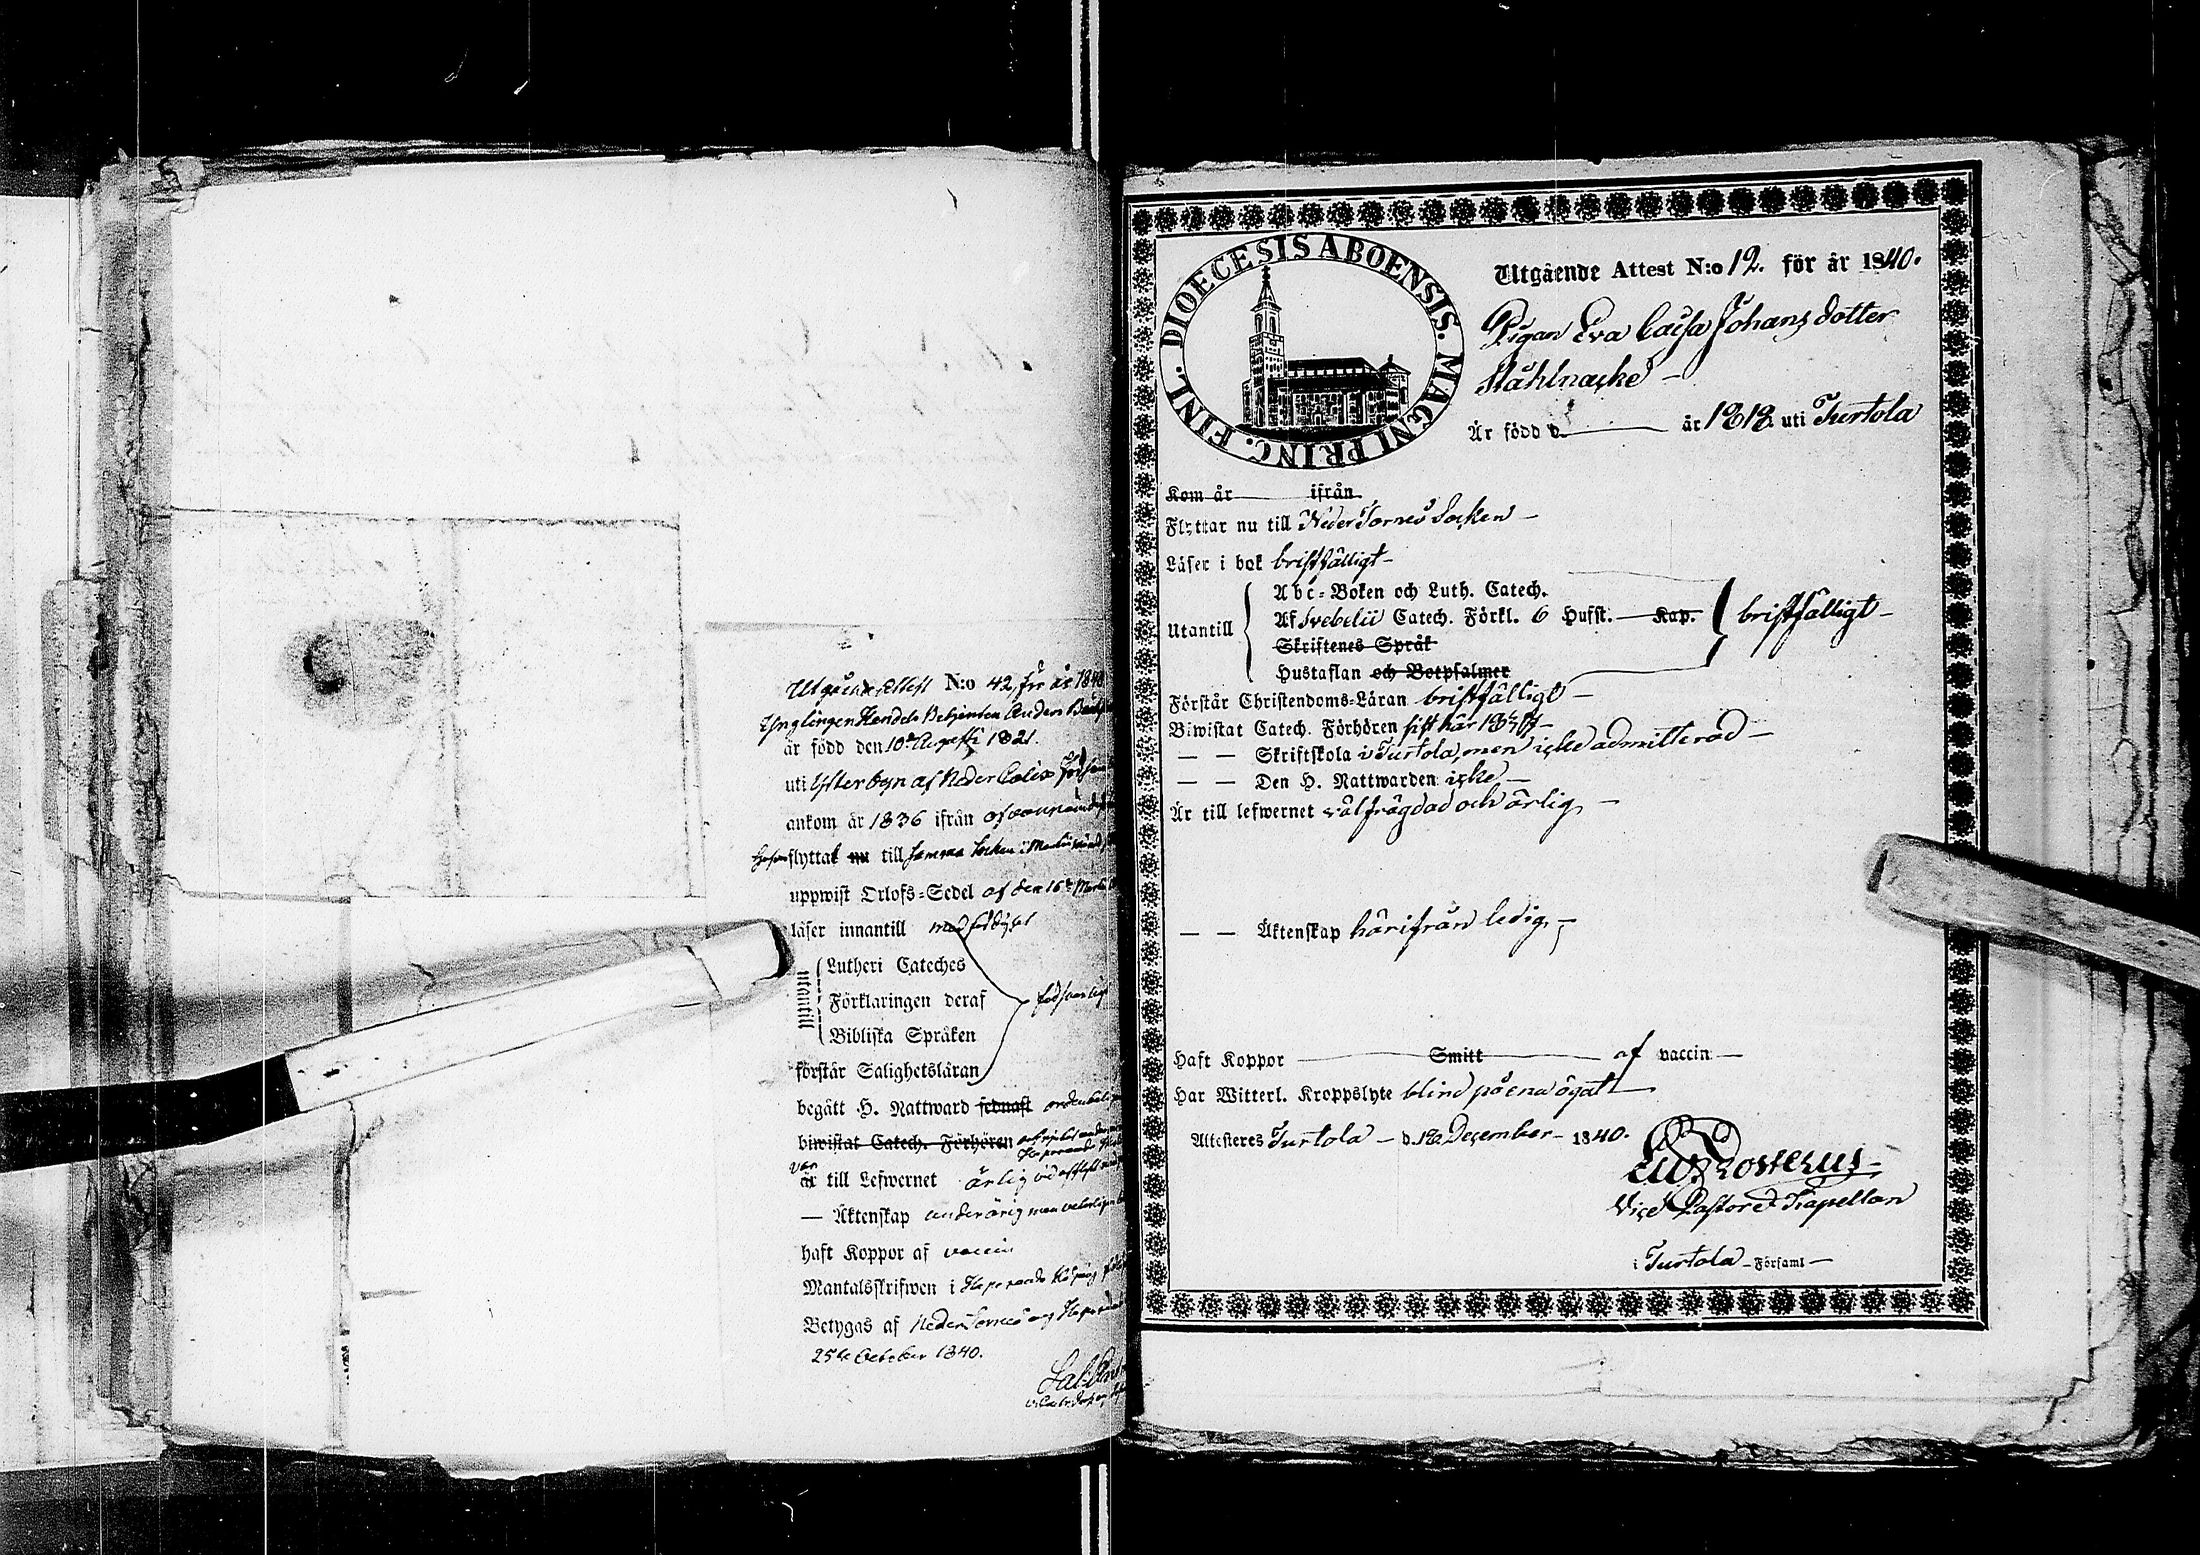 Utgående Attest N:o 42, för år 1840
Ynglingen Handels Betjenten Anders
är född den 10de Augusti 1821.
uti Ytterbyn af Neder Calix
ankom år 1836 ifrån
flyttat nu till samma Socken i
uppwist Orlofs=Sedel af den 16de
läser innantill
utantill
Lutheri Cateches
Förklaringen deraf
Bibliska Språken
förstår Salighetsläran
begått H. Nattward sednast
biwistat Catech. Förhören
var
är till Lefwernet ärlig
— Äktenskap
haft Koppor af vaccin
Mantalsskrifwen i Haparanda Köping
Betygas af Neder Torneå och
25te October 1840.
DIOECESIS ABOENSIS. MAGNI PRINC. FINL.
Utgående Attest N:o 12. för år 1840.
Pigan Eva Caisa Johans dotter
Ståhlnacke —
Är född d. — år 1818. uti Turtola
Kom år — ifrån
Flyttar nu till Neder Torneå Socken —
Läser i bok bristfälligt —
Utantill
Abc=Boken och Luth. Catech.
Af Svebelii Catech. Förkl. 6 Hufst. — Kap.
Skriftenes Språk
Hustaflan och Botpsalmer
bristfälligt —
Förstår Christendoms=Läran bristfälligt —
Biwistat Catech. Förhören sist här
— — Skriftskola i Turtola, men icke admitterad —
— — Den H. Nattwarden icke —
Är till lefwernet välfrägdad och ärlig, —
— — Äktenskap härifrån ledig, —
Haft Koppor — Smitt — af vaccin —
Har Witterl. Kroppslyte blind på ena ögat —
Attesteres Turtola — d. December — 1840.
Vice Pastor & Kapellan
i Turtola — Församl —